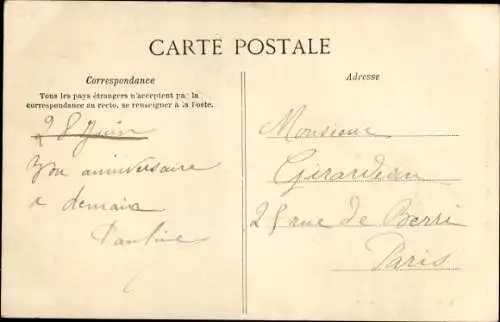 CARTE POSTALE
Correspondance
Tous les pays étrangers n'acceptent pas la
correspondance au recto, se renseigner à la Poste.
28 Juin
anniversaire
a demain
Pauline
Adresse
Monsieur
Girardeau
25 rue de Berri
Paris